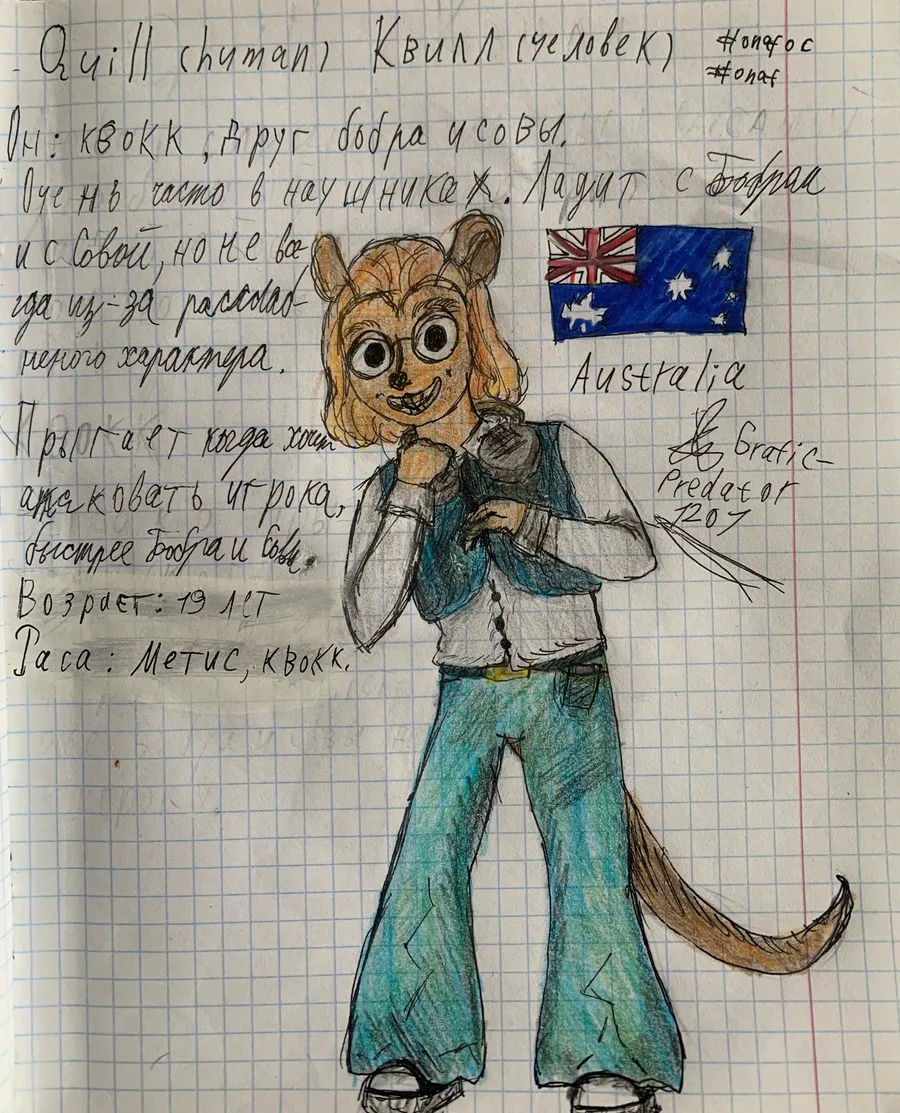 Quill (human) Квилл (человек)
#onaf oc
#onaf
Он: квокк, друг бобра и совы.
Очень часто в наушниках. Ладит с Бобрам
и с Совой, но не все-
гда из-за расслаб-
неного характера.
Прыгает когда хочет
атаковать игрока,
быстрее Бобра и Совы.
Возраст: 19 лет
Раса: Метис, квокк.
Australia
Grafic-
Predator
1207